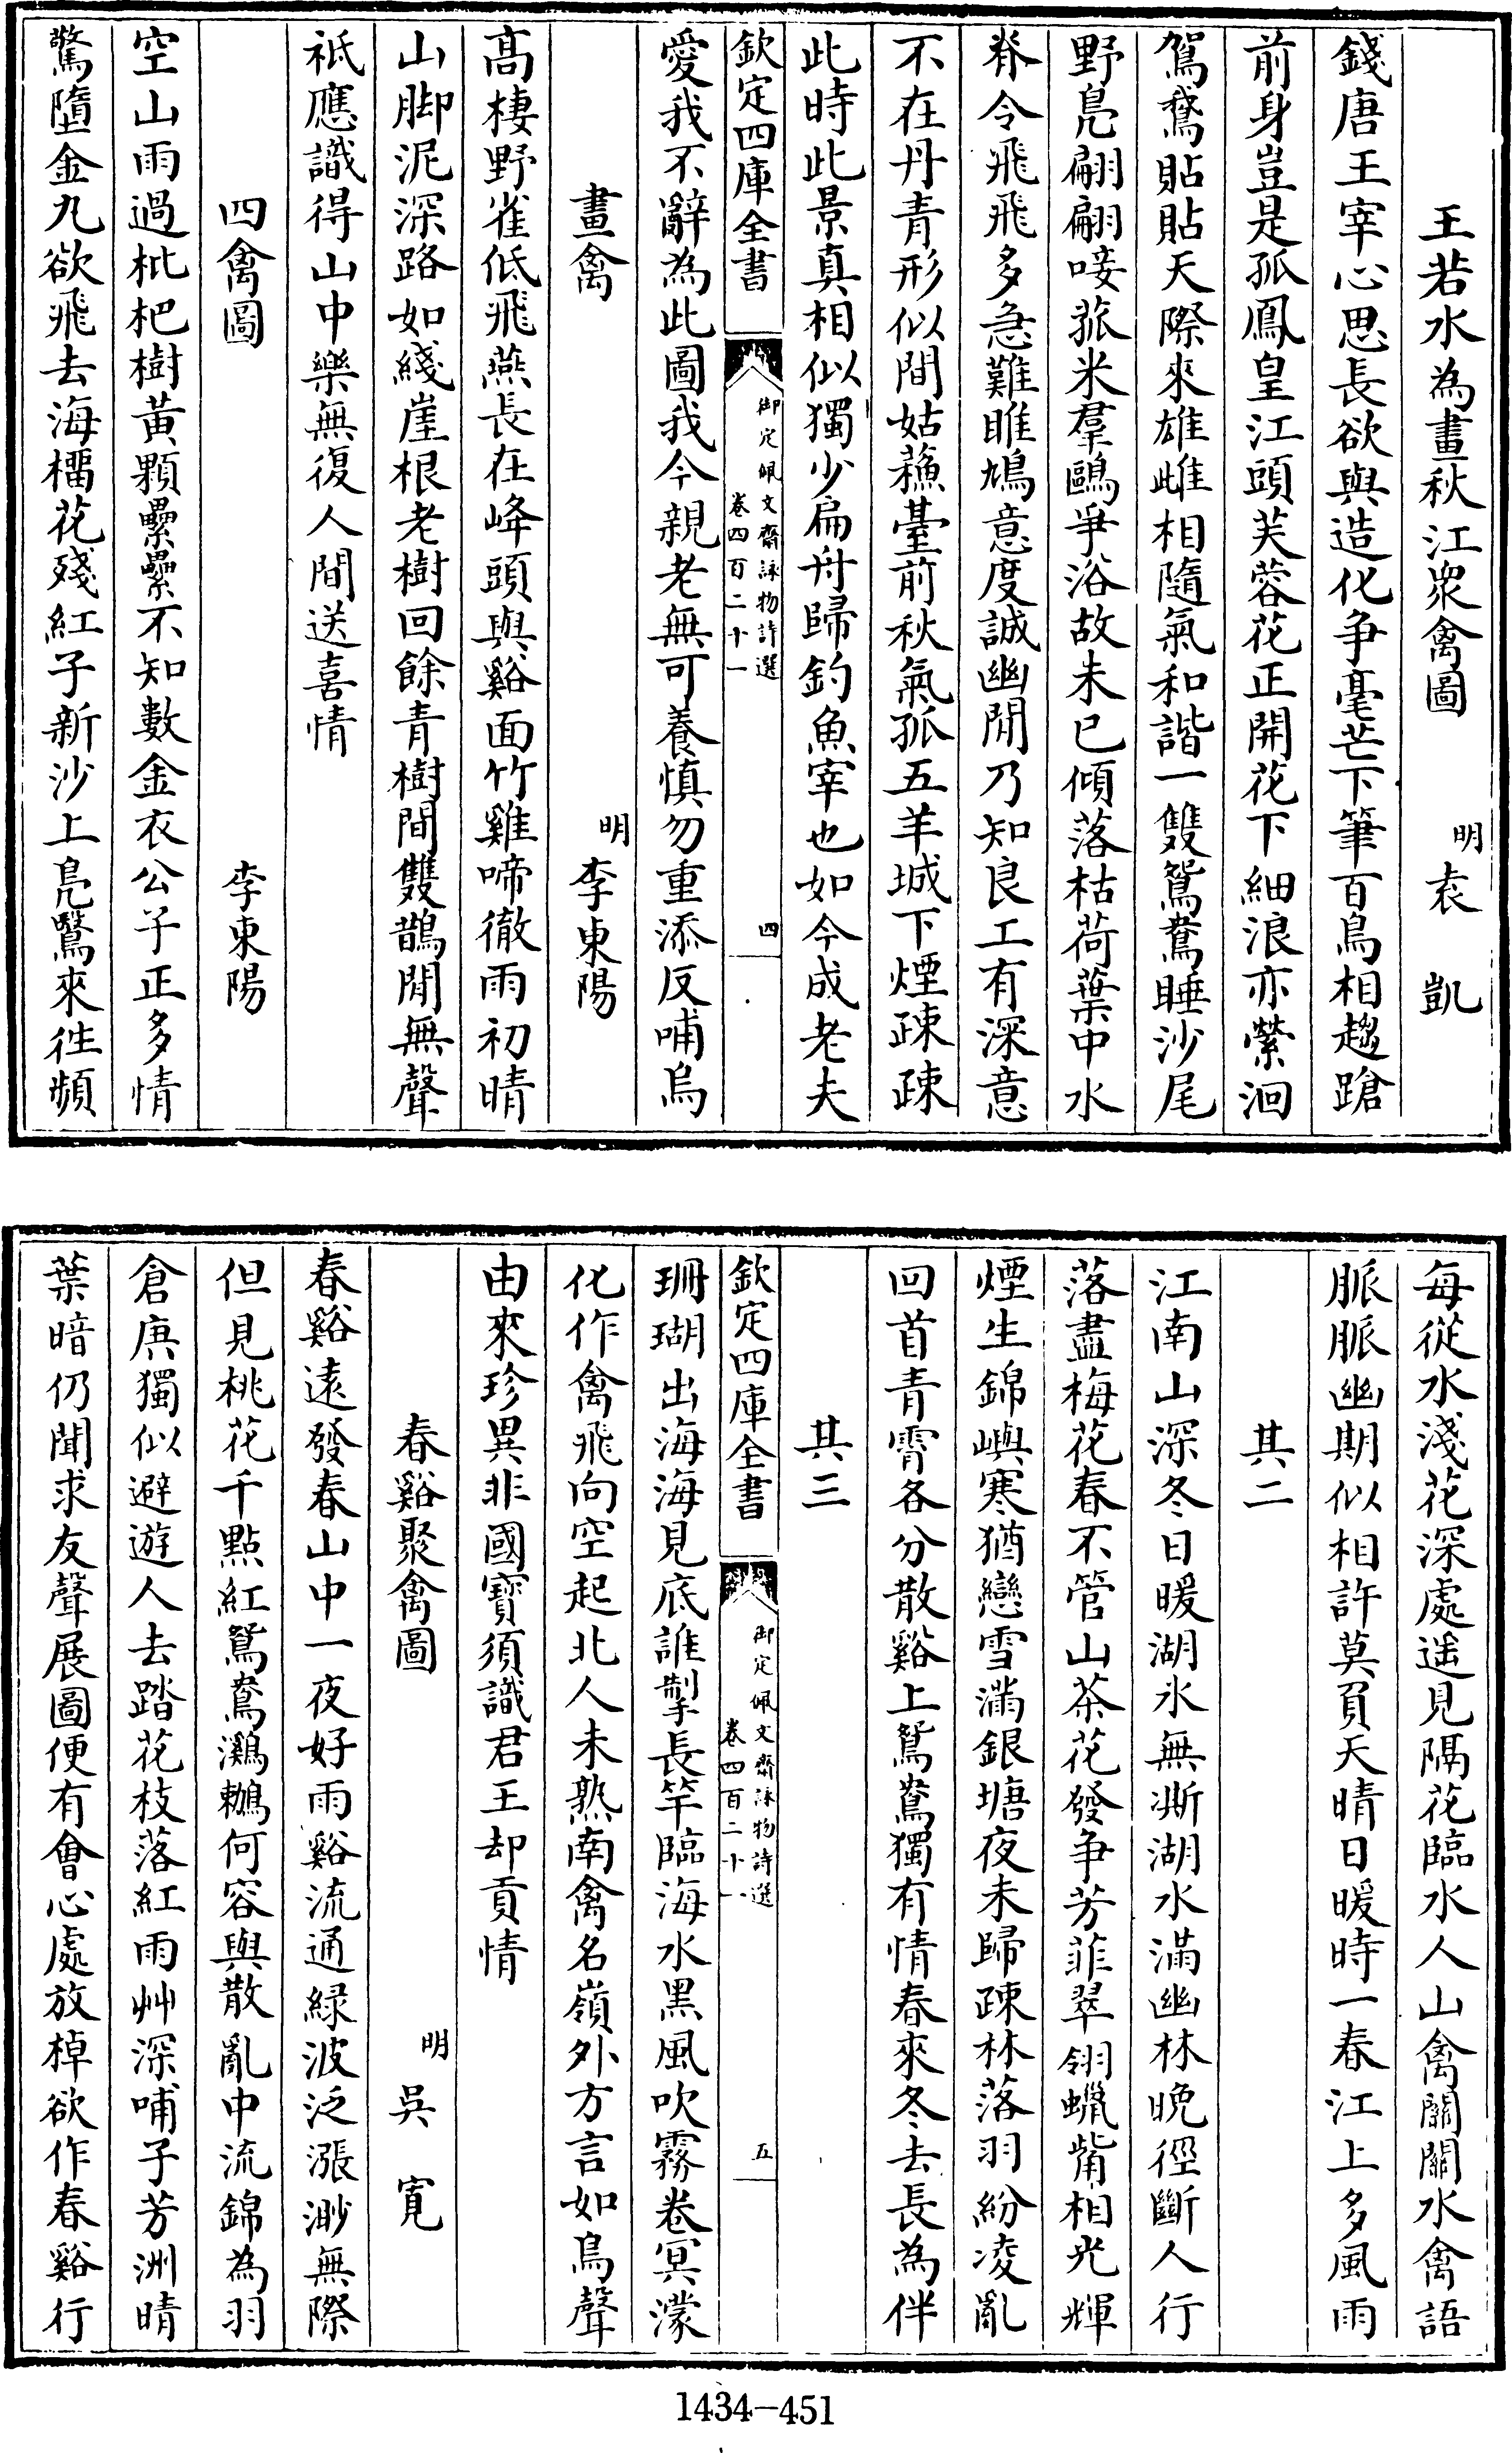 王若水為畫秋江衆禽圖 明 袁凱
錢唐王宰心思長欲與造化争毫芒下筆百鳥相趨蹌
前身豈是孤鳳皇江頭芙蓉花正開花下細浪亦縈洄
鴐鵞貼貼天際來雄雌相隨氣和諧一雙鴛鴦睡沙尾
野鳧翩翩唼菰米羣鷗爭浴故未已傾落枯荷葉中水
脊令飛飛多急難雎鳩意度誠幽閒乃知良工有深意
不在丹青形似間姑蘓臺前秋氣孤五羊城下煙疎疎
此時此景真相似獨少扁舟歸釣魚宰也如今成老夫
欽定四庫全書 御定佩文齋詠物詩選 卷四百二十一 四
愛我不辭為此圖我今親老無可養慎勿重添反哺烏
畫禽 明 李東陽
高棲野雀低飛燕長在峰頭與谿面竹雞啼徹雨初晴
山脚泥深路如綫崖根老樹回餘青樹間雙鵲閒無聲
祗應識得山中樂無復人間送喜情
四禽圖 李東陽
空山雨過枇杷樹黃顆纍纍不知數金衣公子正多情
驚墮金九欲飛去海榴花殘紅子新沙上鳧鷖來往頻
每從水淺花深處遥見隔花臨水人山禽關關水禽語
脈脈幽期似相許莫負天晴日暖時一春江上多風雨
其二
江南山深冬日暖湖氷無澌湖水滿幽林晩徑斷人行
落盡梅花春不管山茶花發争芳菲翠翎蠟觜相光輝
煙生錦嶼寒猶戀雪滿銀塘夜未歸疎林落羽紛凌亂
回首青霄各分散谿上鴛鴦獨有情春來冬去長為伴
其三
欽定四庫全書 御定佩文齋詠物詩選 卷四百二十一 五
珊瑚出海海見底誰掣長竿臨海水黑風吹霧卷冥濛
化作禽飛向空起北人未熟南禽名嶺外方言如鳥聲
由來珍異非國寶須識君王却貢情
春谿聚禽圖 明 吳寬
春谿遠發春山中一夜好雨谿流通綠波泛漲渺無際
但見桃花千點紅鴛鴦鸂鶒何容與散亂中流錦為羽
倉庚獨似避遊人去踏花枝落紅雨艸深哺子芳洲晴
葉暗仍聞求友聲展圖便有會心處放棹欲作春谿行
1434-451